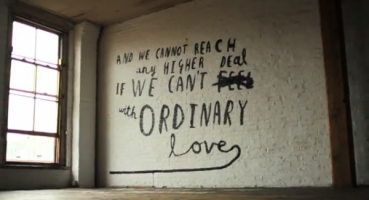 AND WE CANNOT REACH
any HIGHER Deal
IF WE CAN'T FEEL
with ORDINARY
love